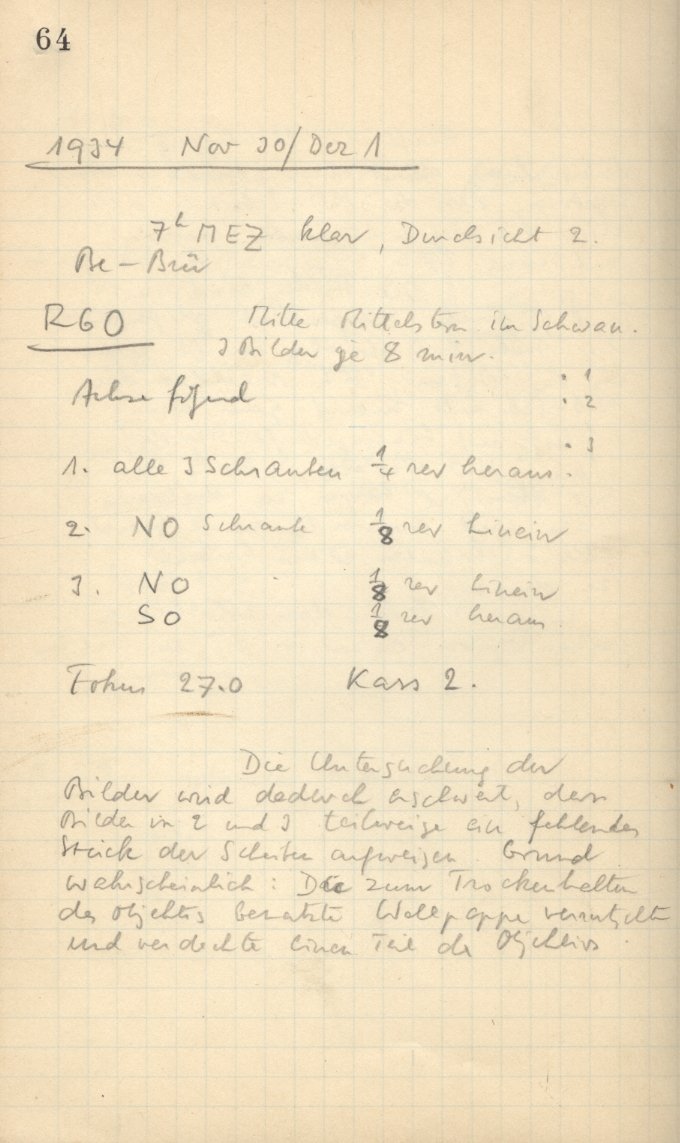 64
1934 Nov 30/Dez 1
7h MEZ klar, Durchsicht 2.
Be – Brü
R60 Mitte Mittelstern im Schwan.
3 Bilder je 8 min.
Achse folgend
. 1
. 2
. 3
1. alle 3 Schrauben 1/4 rev heraus.
2. NO Schraube 1/8 rev hinein
3. NO 1/8 rev hinein
SO 1/8 rev heraus.
Fokus 27.0 Kass 2.
Die Untersuchung der
Bilder wird dadurch erschwert, dass
Bilder in 2 und 3 teilweise ein fehlendes
Stück der Scheiben aufweisen. Grund
wahrscheinlich: Die zum Trockenhalten
des Objektivs benutzte Wellpappe verrutschte
und verdeckte einen Teil des Objektivs.